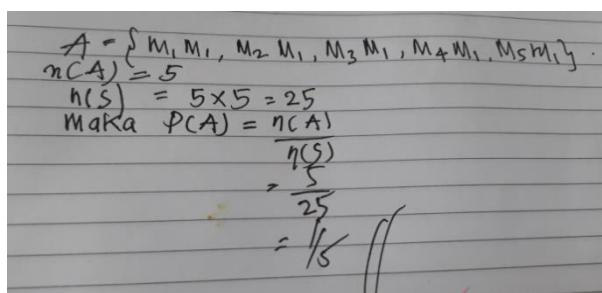 A = {M₁M₁, M₂M₁, M₃M₁, M₄M₁, M₅M₁}.
n(A) = 5
n(S) = 5×5 = 25
Maka P(A) = n(A)
n(S)
= 5
25
= 1/5 //